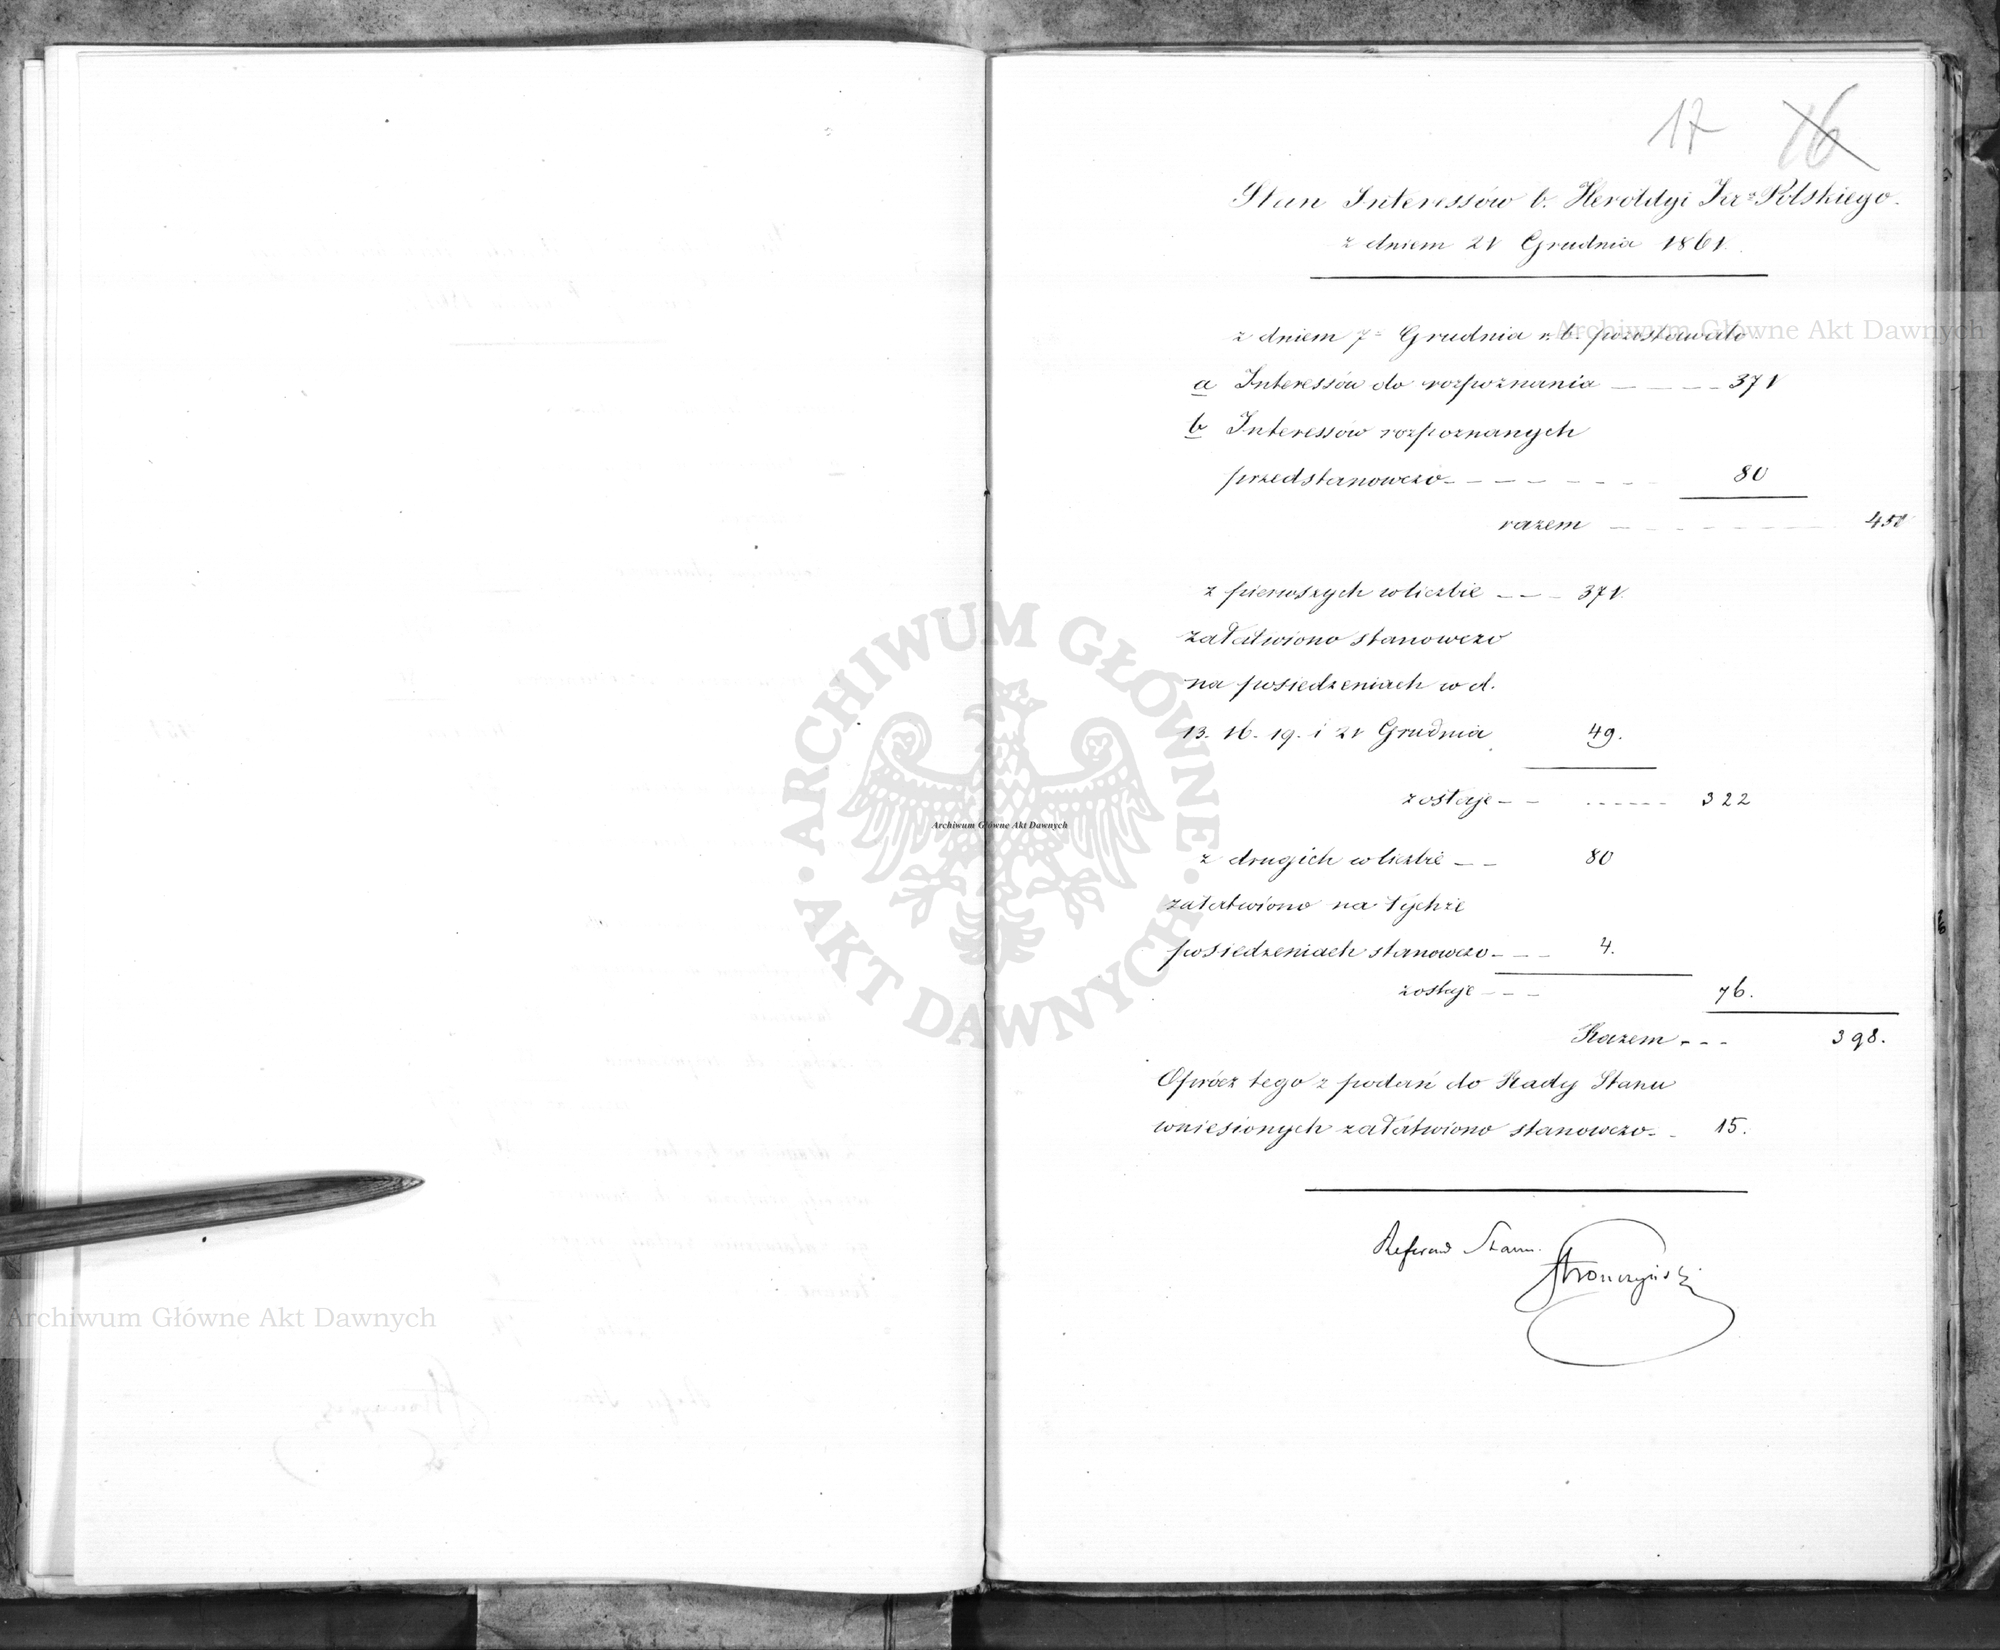 17 16
Stan Interessów b. Heroldyi Kr. Polskiego.
z dniem 21 Grudnia 1861.
z dniem 7 Grudnia r. b. pozostawało
a Interessów do rozpoznania 371
b Interessów rozpoznanych
przedstanowczo 80
razem 451
z pierwszych w liczbie 371.
załatwiono stanowczo
na posiedzeniach w d.
13. 16. 19. i 21 Grudnia 49.
zostaje 322
z drugich w liczbie 80
załatwiono na tychże
posiedzeniach stanowczo 4.
zostaje 76.
Razem 398.
Oprócz tego z podań do Rady Stanu
wniesionych załatwiono stanowczo 15.
Referend Stanu.
Stronczyński
Archiwum Główne Akt Dawnych
ARCHIWUM GŁÓWNE AKT DAWNYCH
Archiwum Główne Akt Dawnych
Archiwum Główne Akt Dawnych